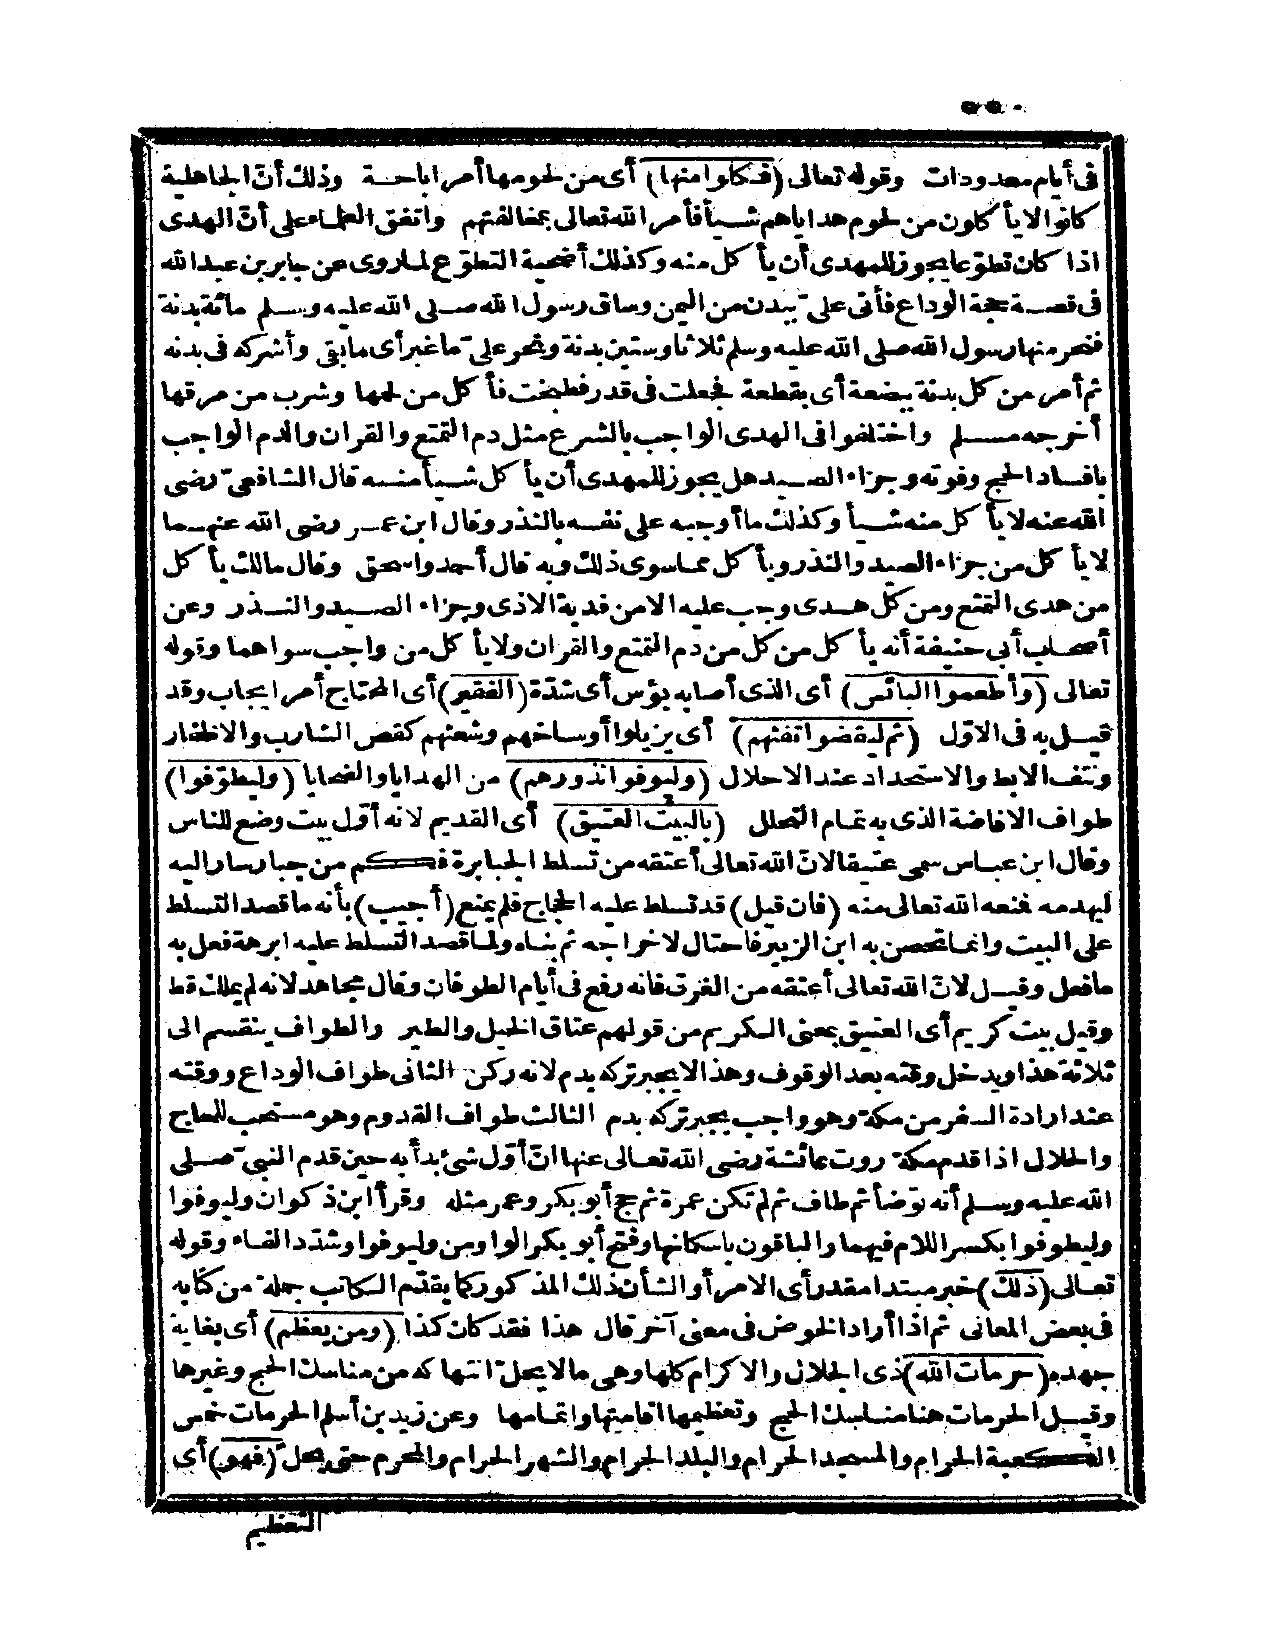 ٥٥٠
فى أيام معدودات وقوله تعالى (فكلوا منها) أى من لحومها أمر اباحة وذلك أنّ الجاهلية
كانوا لا يأكلون من لحوم هداياهم شيأ فأمر الله تعالى بمخالفتهم واتفق العلماء على أنّ الهدى
اذا كان تطوّعا يجوز للمهدى أن يأكل منه وكذلك أضحية التطوّع لما روى عن جابر بن عبد الله
فى قصة حجة الوداع فأتى علىّ ببدن من اليمن وساق رسول الله صلى الله عليه وسلم مائة بدنة
فنحر منها رسول الله صلى الله عليه وسلم ثلاثا وستين بدنة ونحر علىّ ما غبر أى ما بقى وأشركه فى بدنه
ثم أمر من كل بدنة ببضعة أى بقطعة فجعلت فى قدر فطبخت فأكل من لحمها وشرب من مرقها
أخرجه مسلم واختلفوا فى الهدى الواجب بالشرع مثل دم التمتع والقران والدم الواجب
بافساد الحج وفوته وجزاء الصيد هل يجوز للمهدى أن يأكل شيأ منه قال الشافعىّ رضى
الله عنه لا يأكل منه شيأ وكذلك ما أوجبه على نفسه بالنذر وقال ابن عمر رضى الله عنهما
لا يأكل من جزاء الصيد والنذر ويأكل مما سوى ذلك وبه قال أحمد واسحق وقال مالك يأكل
من هدى التمتع ومن كل هدى وجب عليه الا من فدية الاذى وجزاء الصيد والنذر وعن
أصحاب أبى حنيفة أنه يأكل من كل من دم التمتع والقران ولا يأكل من واجب سواهما وقوله
تعالى (وأطعموا البائس) أى الذى أصابه بؤس أى شدّة (الفقير) أى المحتاج أمر ايجاب وقد
قيل به فى الاوّل (ثم ليقضوا تفثهم) أى يزيلوا أوساخهم وشعثهم كقص الشارب والاظفار
ونتف الابط والاستحداد عند الاحلال (وليوفوا نذورهم) من الهدايا والضحايا (وليطوّفوا)
طواف الافاضة الذى به تمام التحلل (بالبيت العتيق) أى القديم لانه أوّل بيت وضع للناس
وقال ابن عباس سمى عتيقا لانّ الله تعالى أعتقه من تسلط الجبابرة فكم من جبار سار اليه
ليهدمه فمنعه الله تعالى منه (فان قيل) قد تسلط عليه الحجاج فلم يمنع (أجيب) بأنه ما قصد التسلط
على البيت وانما تحصن به ابن الزبير فاحتال لاخراجه ثم بناه ولما قصد التسلط عليه ابرهة فعل به
ما فعل وقيل لانّ الله تعالى أعتقه من الغرق فانه رفع فى أيام الطوفان وقال مجاهد لانه لم يملك قط
وقيل بيت كريم أى العتيق بمعنى الكريم من قولهم عتاق الخيل والطير والطواف ينقسم الى
ثلاثة هذا ويدخل وقته بعد الوقوف وهذا لا يجبر تركه بدم لانه ركن الثانى طواف الوداع ووقته
عند ارادة السفر من مكة وهو واجب يجبر تركه بدم الثالث طواف القدوم وهو مستحب للحاج
والحلال اذا قدم مكة روت عائشة رضى الله تعالى عنها انّ أوّل شئ بدأ به حين قدم النبىّ صلى
الله عليه وسلم أنه توضأ ثم طاف ثم لم تكن عمرة ثم حج أبو بكر وعمر مثله وقرأ ابن ذكوان وليوفوا
وليطوفوا بكسر اللام فيهما والباقون باسكانها وفتح أبو بكر الواو من وليوفوا وشدّد الفاء وقوله
تعالى (ذلك) خبر مبتدا مقدر أى الامر أو الشأن ذلك المذكور كما يقدّم الكاتب جملة من كتابه
فى بعض المعانى ثم اذا أراد الخوض فى معنى آخر قال هذا فقد كان كذا (ومن يعظم) أى بغاية
جهده (حرمات الله) ذى الجلال والاكرام كلها وهى ما لا يحلّ انتهاكه من مناسك الحج وغيرها
وقيل الحرمات هنا مناسك الحج وتعظيمها اقامتها واتمامها وعن زيد بن أسلم الحرمات خمس
الكعبة الحرام والمسجد الحرام والبلد الحرام والشهر الحرام والمحرم حتى يحلّ (فهو) أى
التعظيم